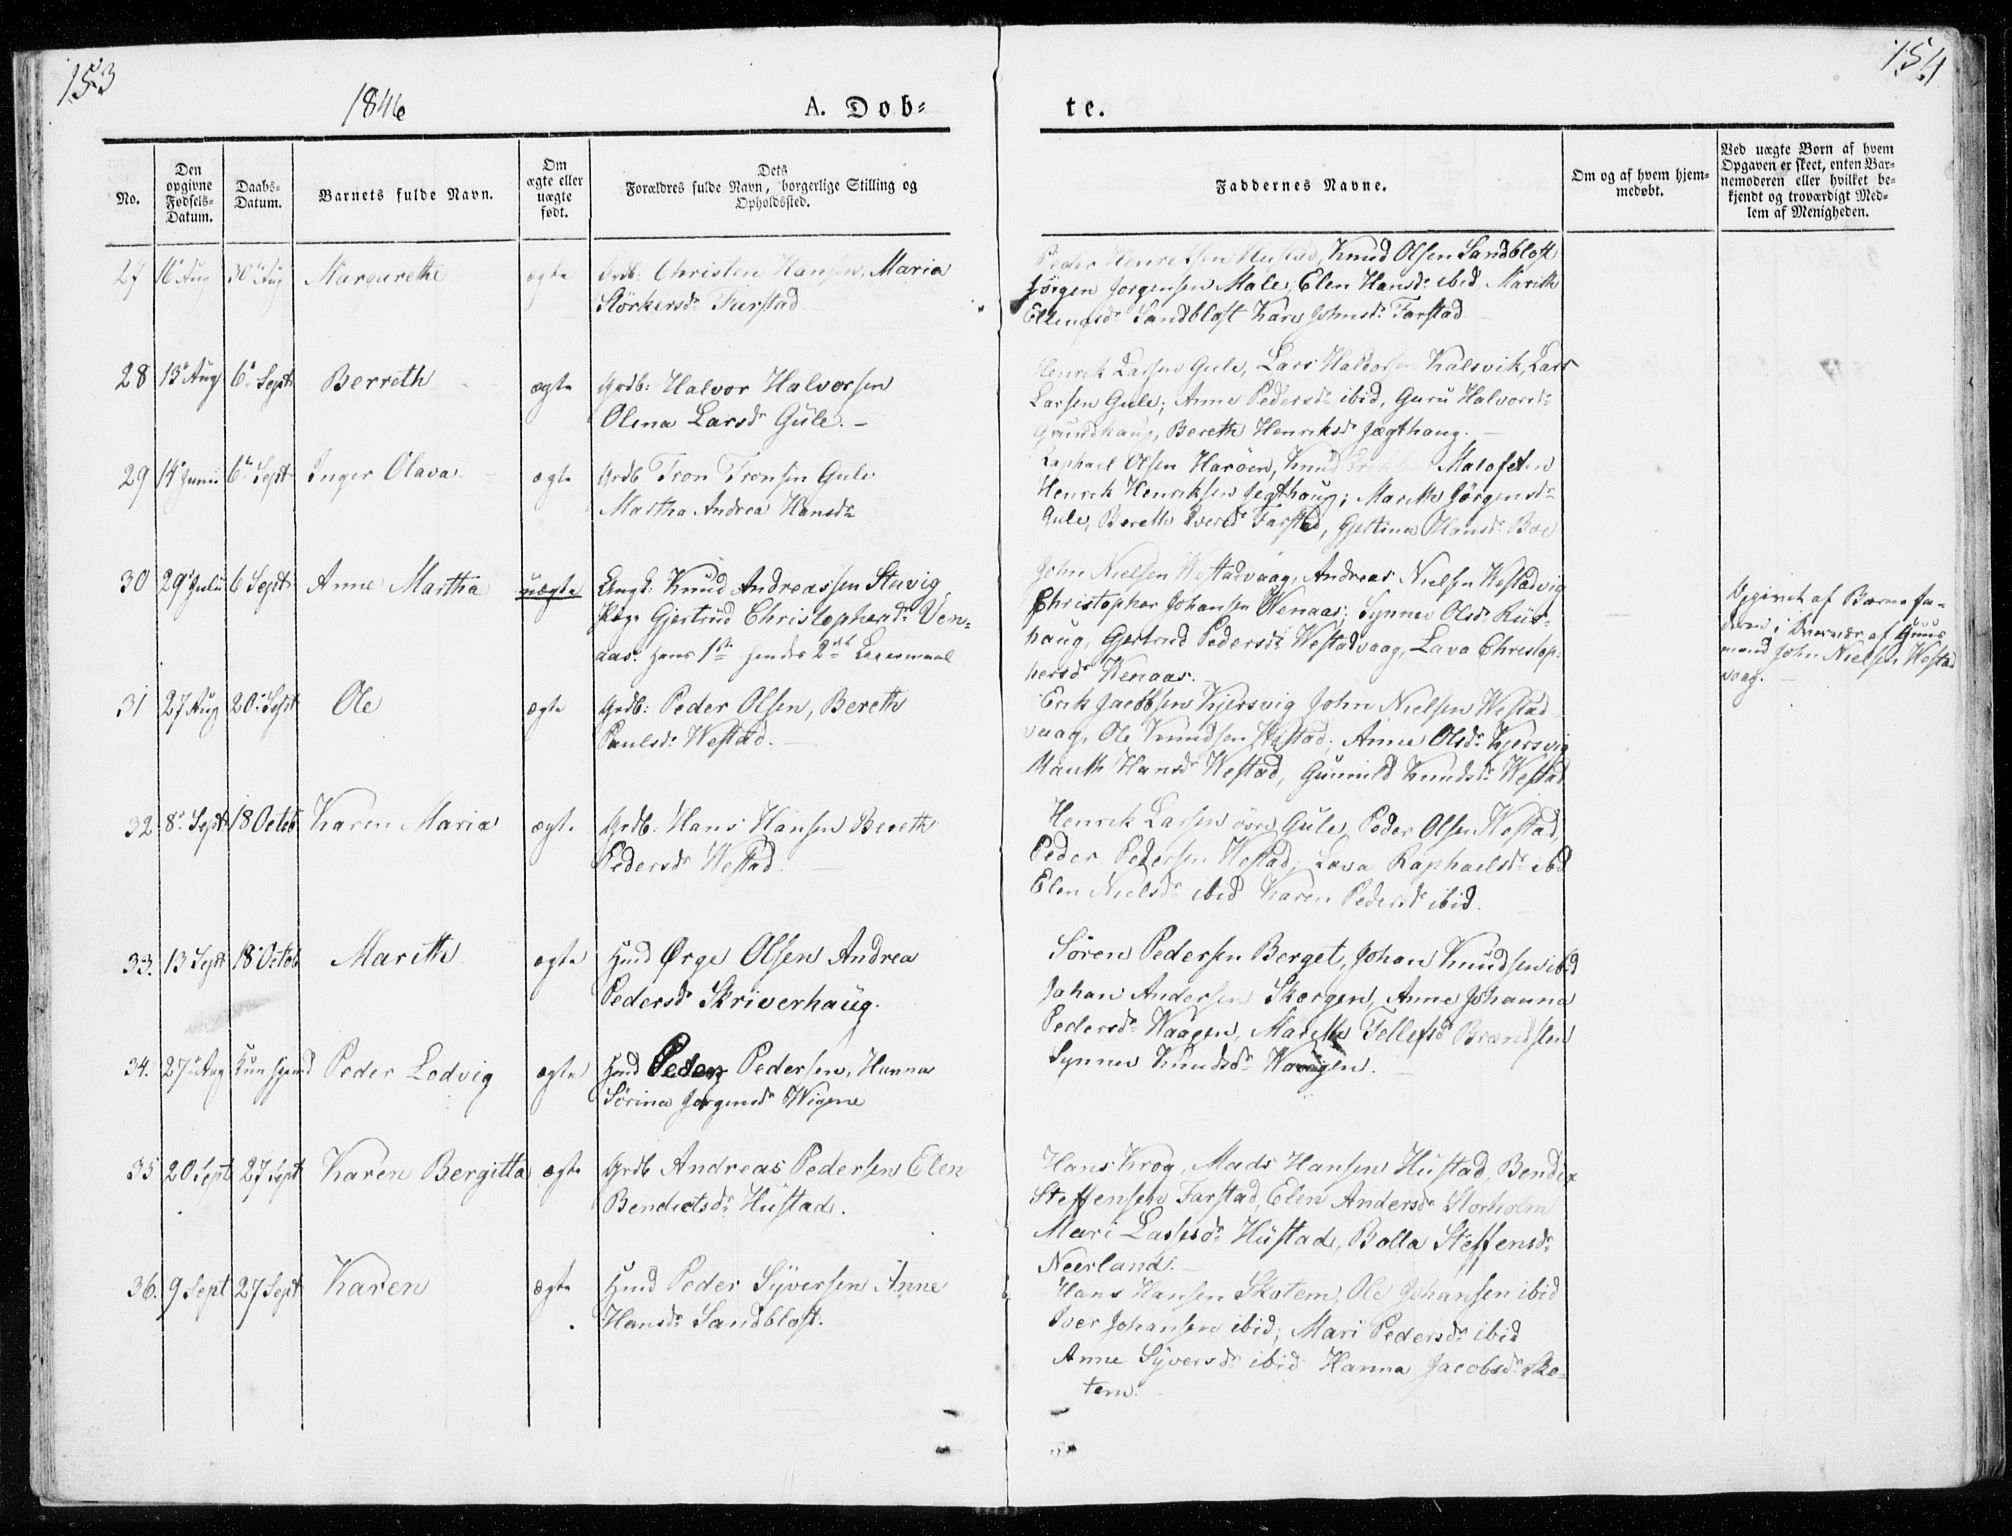 153
154
1846
A. Døb=
te.
No.
Den opgivne Fødsels-Datum.
Daabs-Datum.
Barnets fulde Navn.
Om ægte eller uægte født.
Dets Forældres fulde Navn, borgerlige Stilling og Opholdssted.
Faddernes Navne.
Om og af hvem hjem-medøbt.
Ved uægte Børn af hvem Opgaven er skeet, enten Bar-nemoderen eller hvilket be-kjendt og troværdigt Med-lem af Menigheden.
27 16 Aug 30 Aug Margarethe ægte Grdb: Christen Hansen, Maria
Störkersdr Farstad
Peder Henriksen Hustad, Knud Olsen Sandbløst
Jörgen Jorgensen Male, Elen Hansdr ibid Marith
Sandbløst Kari Johnsdr Farstad
28 13 Aug 6 Sept Berreth ægte Grdb: Halvor Halvorsen
Olina Larsdr Gule. -
Henrik Larsen Gule, Lars Haldorsen Kalsvik, Lars
Larsen Gule; Anne Pedersdr ibid, Guru Halvorsdr
Grundhaug, Bereth Henriksdr Jægthaug.
29 14 Junii 6 Sept Inger Olava ægte Grdb Tron Tronsen Gule
Martha Andrea Hansdr
Raphael Olsen Haröen, Knud Malofeten
Henrik Henriksen Jegthaug; Marith Jörgensdr
Gule, Bereth Iversdr Farstad, Gjertine Hansdr Boe
30 29 Julii 6 Sept Anne Martha uægte Ungk: Knud Andreassen Stavig
Pige Gjertrud Christophersdr Ven-
aas. Hans 1ste hendes 2det Leiermaal
John Nielsen Westadvaag, Andreas Nielsen Westadvig
Christopher Johansen Wenaas; Synnev Olsdr Rus-
haug, Gjertrud Pedersdr Westadvaag, Lava Christop-
hersdr Wenaas.
Opgivet af Barnefa-
deren i Nærvær af Huus
mand John Nielsen Westad
vaag.
31 27 Aug 20 Sept Ole ægte Grdb: Peder Olsen, Bereth
Paulsdr Westad.
Erik Jacobsen Kjersvig John Nielsen Westad
vaag, Ole Knudsen Westad; Anne Olsdr Kjersvig
Marith Hansdr Westad, Gunnild Knudsdr Westad
32 8 Sept 18 Octob Karen Maria ægte Grdb: Hans Hansen Bereth
Pedersdr Westad.
Henrik Larsen övre Gule, Peder Olsen Westad,
Peder Pedersen Westad; Lava Raphaelsdr ibd
Elen Nielsdr ibid Karen Pedersdr ibid.
33. 13 Sept 18 Octob Marith ægte Hmd Ørge Olsen Andrea
Pedersdr Skriverhaug.
Sören Pedersen Berget, Johan Knudsen ibid
Johan Andersen Skorgen, Anne Johanna
Pedersdr Waagen, Marith Tellefsdr Brandslen
Synnev Knudsdr Waagen.
34. 27 Aug Peder Lodvig ægte Hmd Peder Pedersen, Hanna
Sörina Jörgensdr Wigene
35 20 Sept 27 Sept Karen Bergitta ægte Grdb Andreas Pedersen Elen
Bendictsdr Hustad.
Hans Krog, Mads Hansen Hustad, Bendix
Steffensen Farstad, Elen Andersdr Storholm
Mari Lassesdr Hustad, Bolla Steffensdr
Neerland.
36. 9 Sept 27 Sept Karen ægte Hmd Peder Syversen Anne
Hansdr Sandbløst.
Hans Hansen Skotem, Ole Johansen ibid
Iver Johansen ibid; Mari Pedersdr ibid
Anne Syversdr ibid Hanna Jacobsdr Sko-
tem.